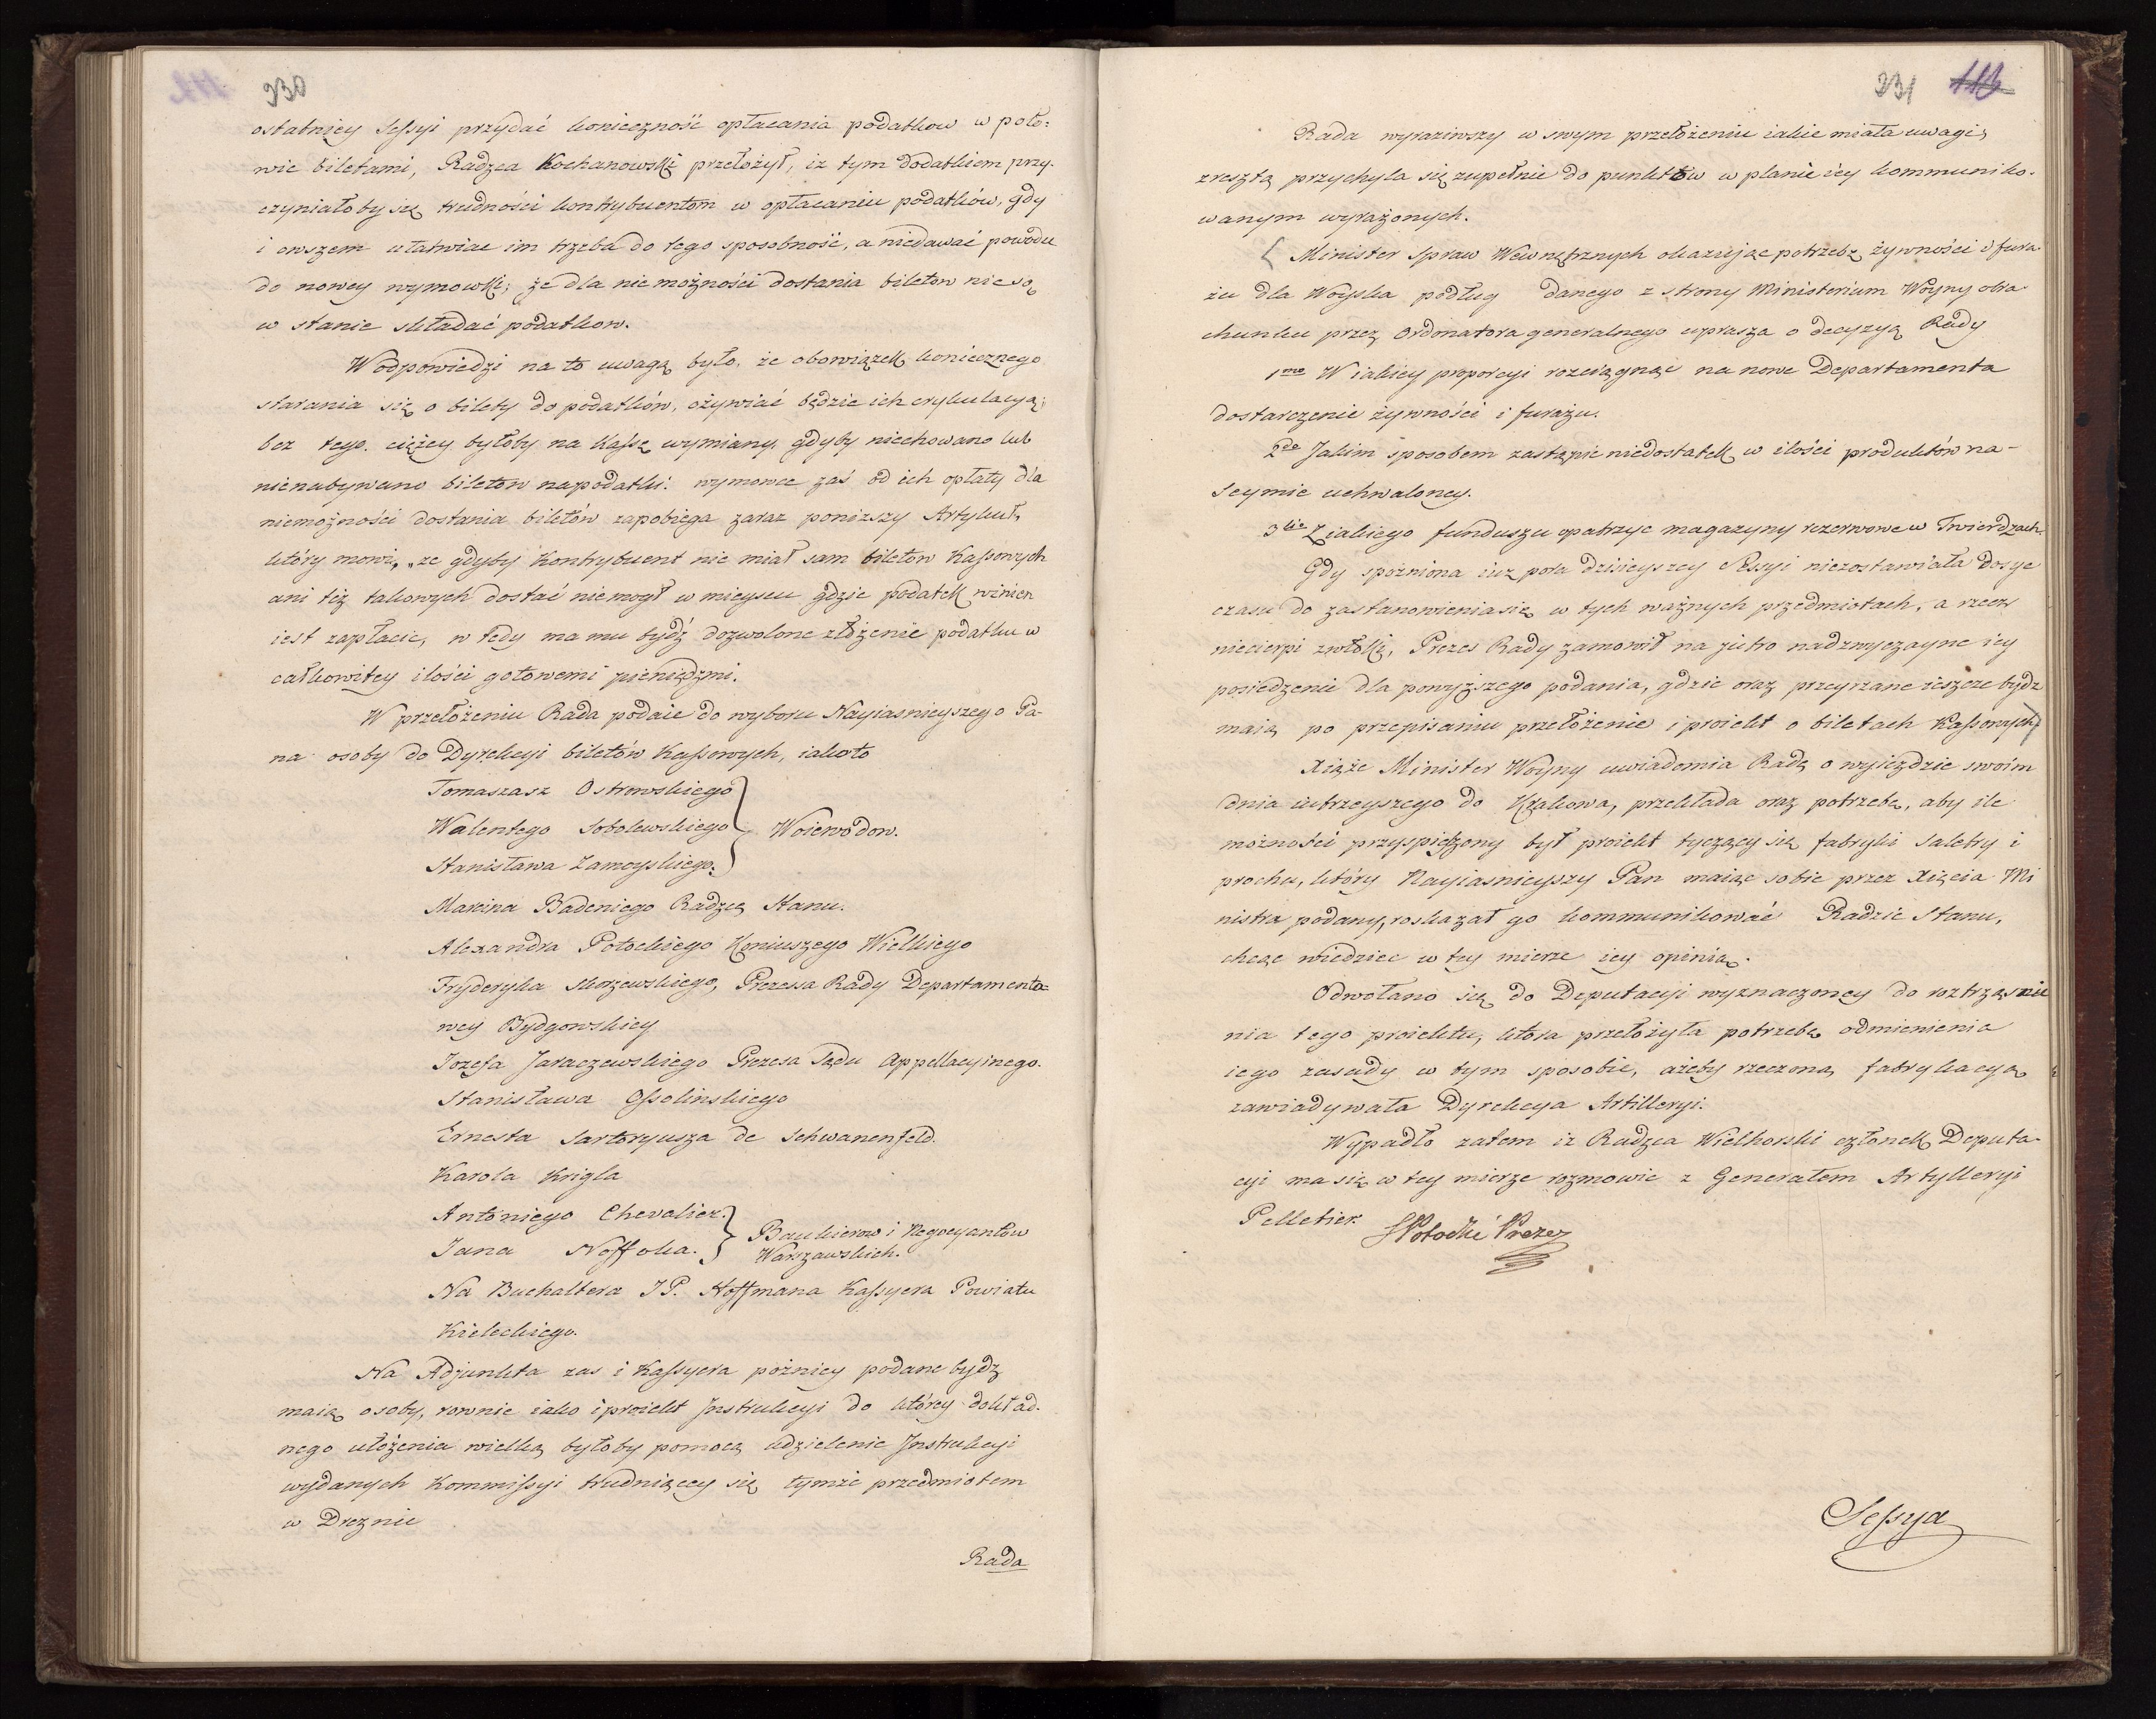 230
ostatniey Sessyi przydać konieczność opłacania podatkow w poło-
wie biletami, Radzca Kochanowski przełożył, iż tym dodatkiem przy-
czyniałoby się trudności kontrybuentom w opłacaniu podatków, gdy
i owszem ułatwiac im trzeba do tego sposobność, a niedawać powodu
do nowey wymowki; że dla niemożności dostania biletow nie są
w stanie składać podatkow.
W odpowiedzi na to uwagą było, że obowiązek koniecznego
starania się o bilety do podatków, ożywiać będzie ich cyrkulacyą;
bez tego ciężey byłoby na Kassę wymiany, gdyby niechowano lub
nienabywano biletow na podatki: wymowce zaś od ich opłaty dla
niemożności dostania biletów zapobiega zaraz ponizszy Artykuł,
który mowi, „ze gdyby Kontrybuent nie miał sam biletow Kassowych
ani też takowych dostać niemogł w mieyscu gdzie podatek winien
iest zapłacic, w tedy ma mu bydź dozwolone złożenie podatku w
całkowitey ilości gotowemi pieniędzmi.
W przełożeniu Rada podaie do wyboru Nayiasnieyszego Pa-
na osoby do Dyrekcyi biletów Kassowych, iakoto
Tomaszasz Ostrowskiego
Walentego Sobolewskiego } Woiewodow.
Stanisława Zamoyskiego.
Marcina Badeniego Radzcę Stanu.
Alexandra Potockiego Koniuszego Wielkiego
Fryderyka Skorzewskiego, Prezesa Rady Departamento-
wey Bydgowskiey
Jozefa Jaraczewskiego Prezesa Sądu Appellacyinego.
Stanisława Ossolinskiego
Ernesta Sartoryusza de Schwanenfeld.
Karola Krigla
Antoniego Chevalier.
Jana Neffoka. } Bankierow i Negocyantów
Warszawskich.
Na Buchaltera JP. Hoffmana Kassyera Powiatu
Kieleckiego.
Na Adjunkta zas i Kassyera pożniey podane bydź
maią osoby, rownie iako i proiekt Instrukcyi do którey dokład-
nego ułożenia wielką byłoby pomocą udzielenie Instrukcyi
wydanych Kommissyi trudniącey się tymże przedmiotem
w Dreznie
Rada
231 113
Rada wyraziwszy w swym przełożeniu iakie miała uwagi,
zresztą przychyla się zupełnie do punktów w planie iey kommuniko-
wanym wyrażonych.
Minister Spraw Wewnętrznych okazując potrzebę żywności i fura-
żu dla Woyska podług danego z strony Ministerium Woyny obra-
chunku przez Ordonatora generalnego uprasza o decyzyą Rady
1mo W iakiey proporcyi rozciągnąc na nowe Departamenta
dostarczenie żywności i furażu.
2do Jakim sposobem zastąpic niedostatek w ilości produktów na-
Seymie uchwaloney.
3tio Z iakiego funduszu opatrzyc magazyny rezerwowe w Twierdzach.
Gdy spozniona iuz pora dzisieyszey Sessyi niezostawiała dosyc
czasu do zastanowienia się w tych ważnych przedmiotach, a rzecz
niecierpi zwłoki, Prezes Rady zamowił na jutro nadzwyczayne iey
posiedzenie dla powyższego podania, gdzie oraz przeyrzane ieszcze bydz
maią po przepisaniu przełożenie i proiekt o biletach Kassowych
Xiąże Minister Woyny uwiadomia Radę o wyieździe swoim
dnia iutrzeyszego do Krakowa, przekłada oraz potrzebę, aby ile
możności przyspieszony był proiekt tyczący się fabryki Saletry i
prochu, który Nayiasnieyszy Pan maiąc sobie przez Xięcia Mi
nistra podany, roskazał go kommunikować Radzie Stanu,
chcąc wiedziec w tey mierze iey opinią.
Odwołano się do Deputacyi wyznaczoney do roztrząsnie
nia tego proiektu, ktora przełożyła potrzebę odmienienia
iego zasady w tym sposobie, ażeby rzeczoną fabrykacyą
zawiadywała Dyrekcya Artilleryi.
Wypadło zatem iz Radzca Wielhorski członek Deputa-
cyi ma się w tey mierze rozmowic z Generałem Artylleryi
Pelletier.
SPotocki Prezez
Sessya